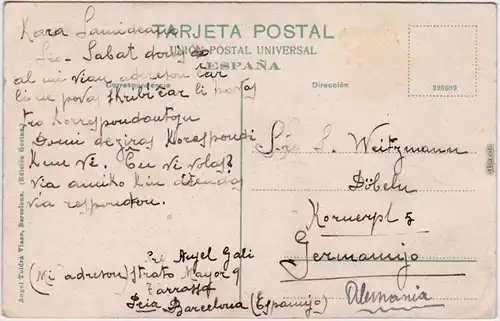 TARJETA POSTAL
UNIÓN POSTAL UNIVERSAL
ESPAÑA
Correspondencia
Dirección
399689
Kara Samideano
Sro Sabat donis
al mi vian adreson ĉar
li ne povas skribi ĉar li povas
korrespondantoju
Domi deziras Korespondi
Kun vi. Ĉu vi volas?
Via amiko kiu atendas
via respondon.
Sro Anjel Gali
(Mi adreson) strato Mayor 9
Tarrassa
Barcelona (Espanujo)
Sro S. Weitzmann
Döbeln
Kornerpl 5
Germanijo
Alemania
Angel Toldrá Viazo, Barcelona. (Edición Gorina)